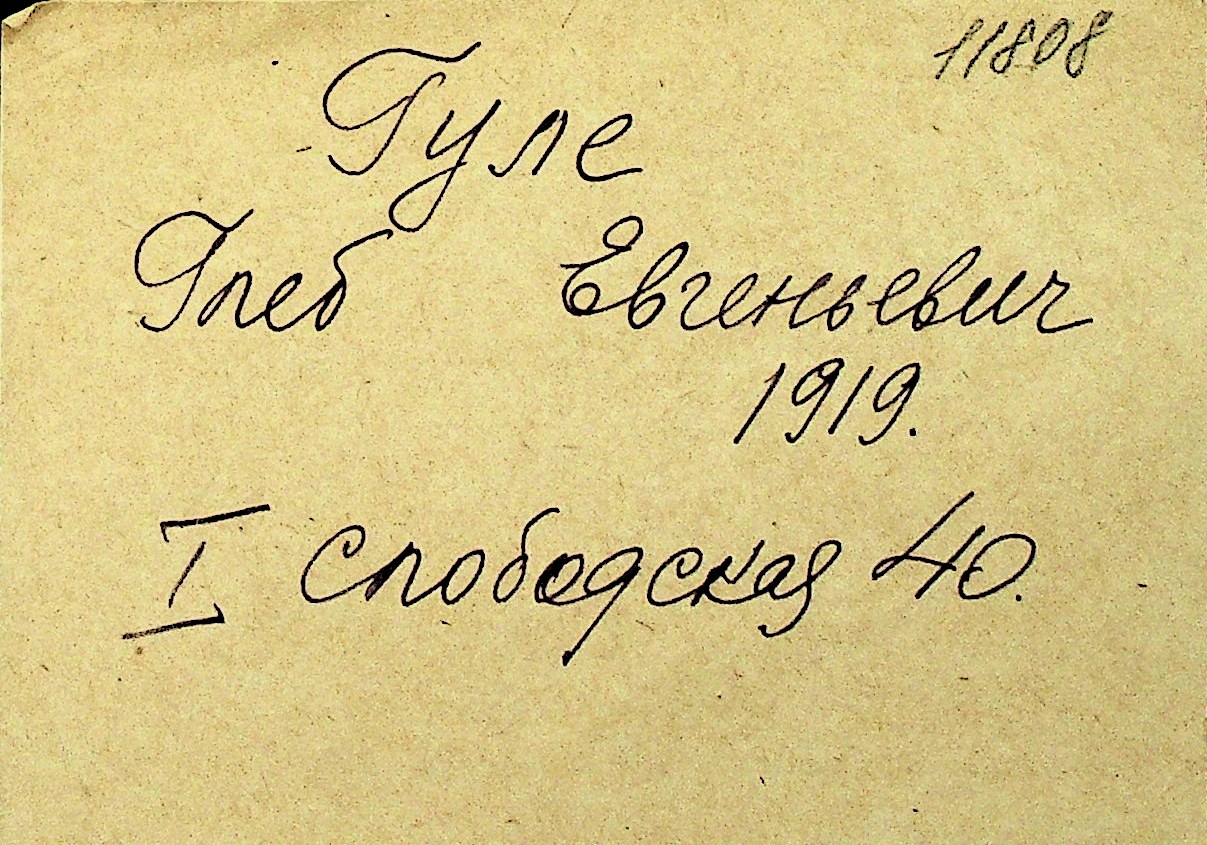 11808
Гуле
Глеб Евгеньевич
1919.
I Слободская 40.